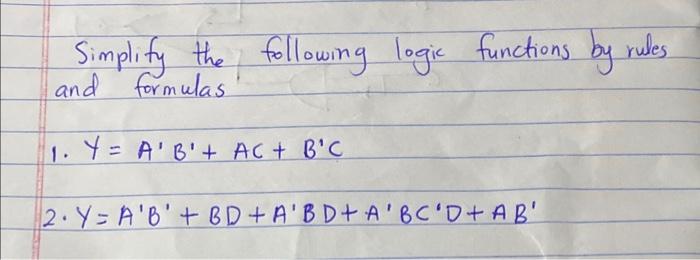 Simplify the following logic functions by rules
and formulas
1. Y = A'B' + AC + B'C
2. Y = A'B' + BD + A'BD + A'BC'D + AB'